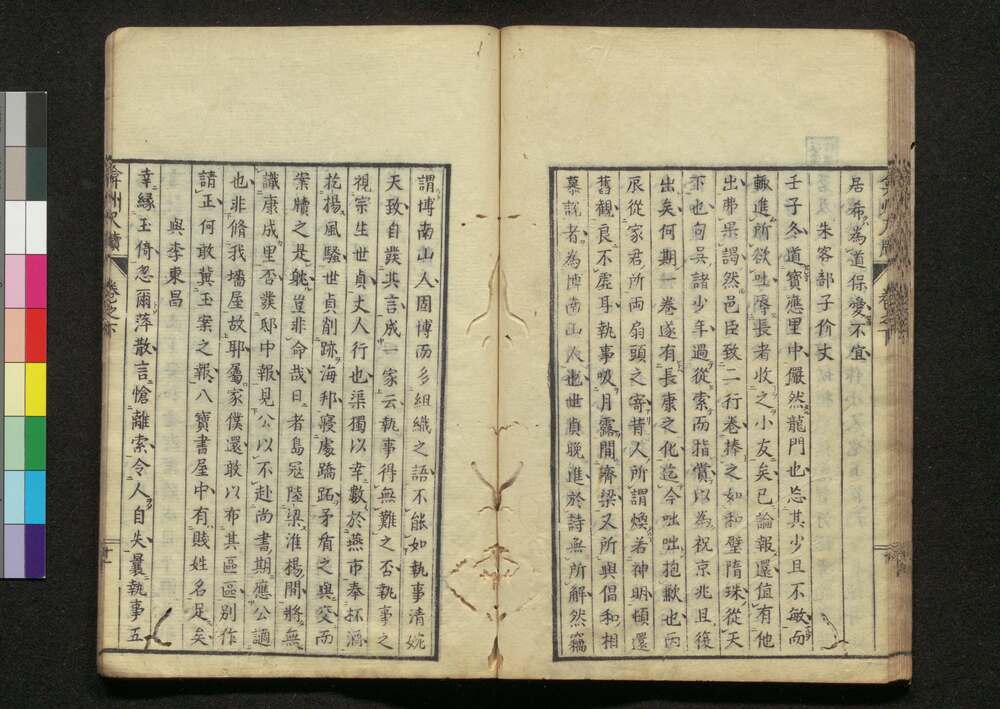 居希為道保愛不宜
朱客部子价丈
壬子冬道寶應里中儼然龍門也忘其少且不敏而
輒進所欲吐辱長者收之小友矣已論報還值有他
出弗果謁然邑臣致二行卷捧之如和璧隋珠從天
下也向吳諸少年過從索而指賞以為祝京兆且後
出矣何期一卷遂有長康之化迄今咄咄抱歉也丙
辰從家君所兩扇頭之寄昔人所謂煥若神明頓還
舊觀良不虛耳執事吸月露閒齊梁又所與倡和相
慕說者為博南山人也世貞晚進於詩無所解然竊
謂博南山人固博而多組織之語不能如執事清婉
天致自發其言成一家云執事得無難之否執事之
視宗生世貞丈人行也渠獨以幸數於燕市奉杯酒
扢揚風騷世貞削跡海邦寢處蹻跖矛盾之與交而
案牘之是躭豈非命哉日者島寇陸梁淮揚間將無
識康成里否發邸中報見公以不赴尚書期應公謫
也非脩我墻屋故耶屬家僕還敢以布其區區別作
請正何敢冀玉案之報八寶書屋中有賤姓名足矣
與李東昌
幸緣玉倚忽爾萍散言愴離索令人自失曩執事五
弇州尺牘
卷之下